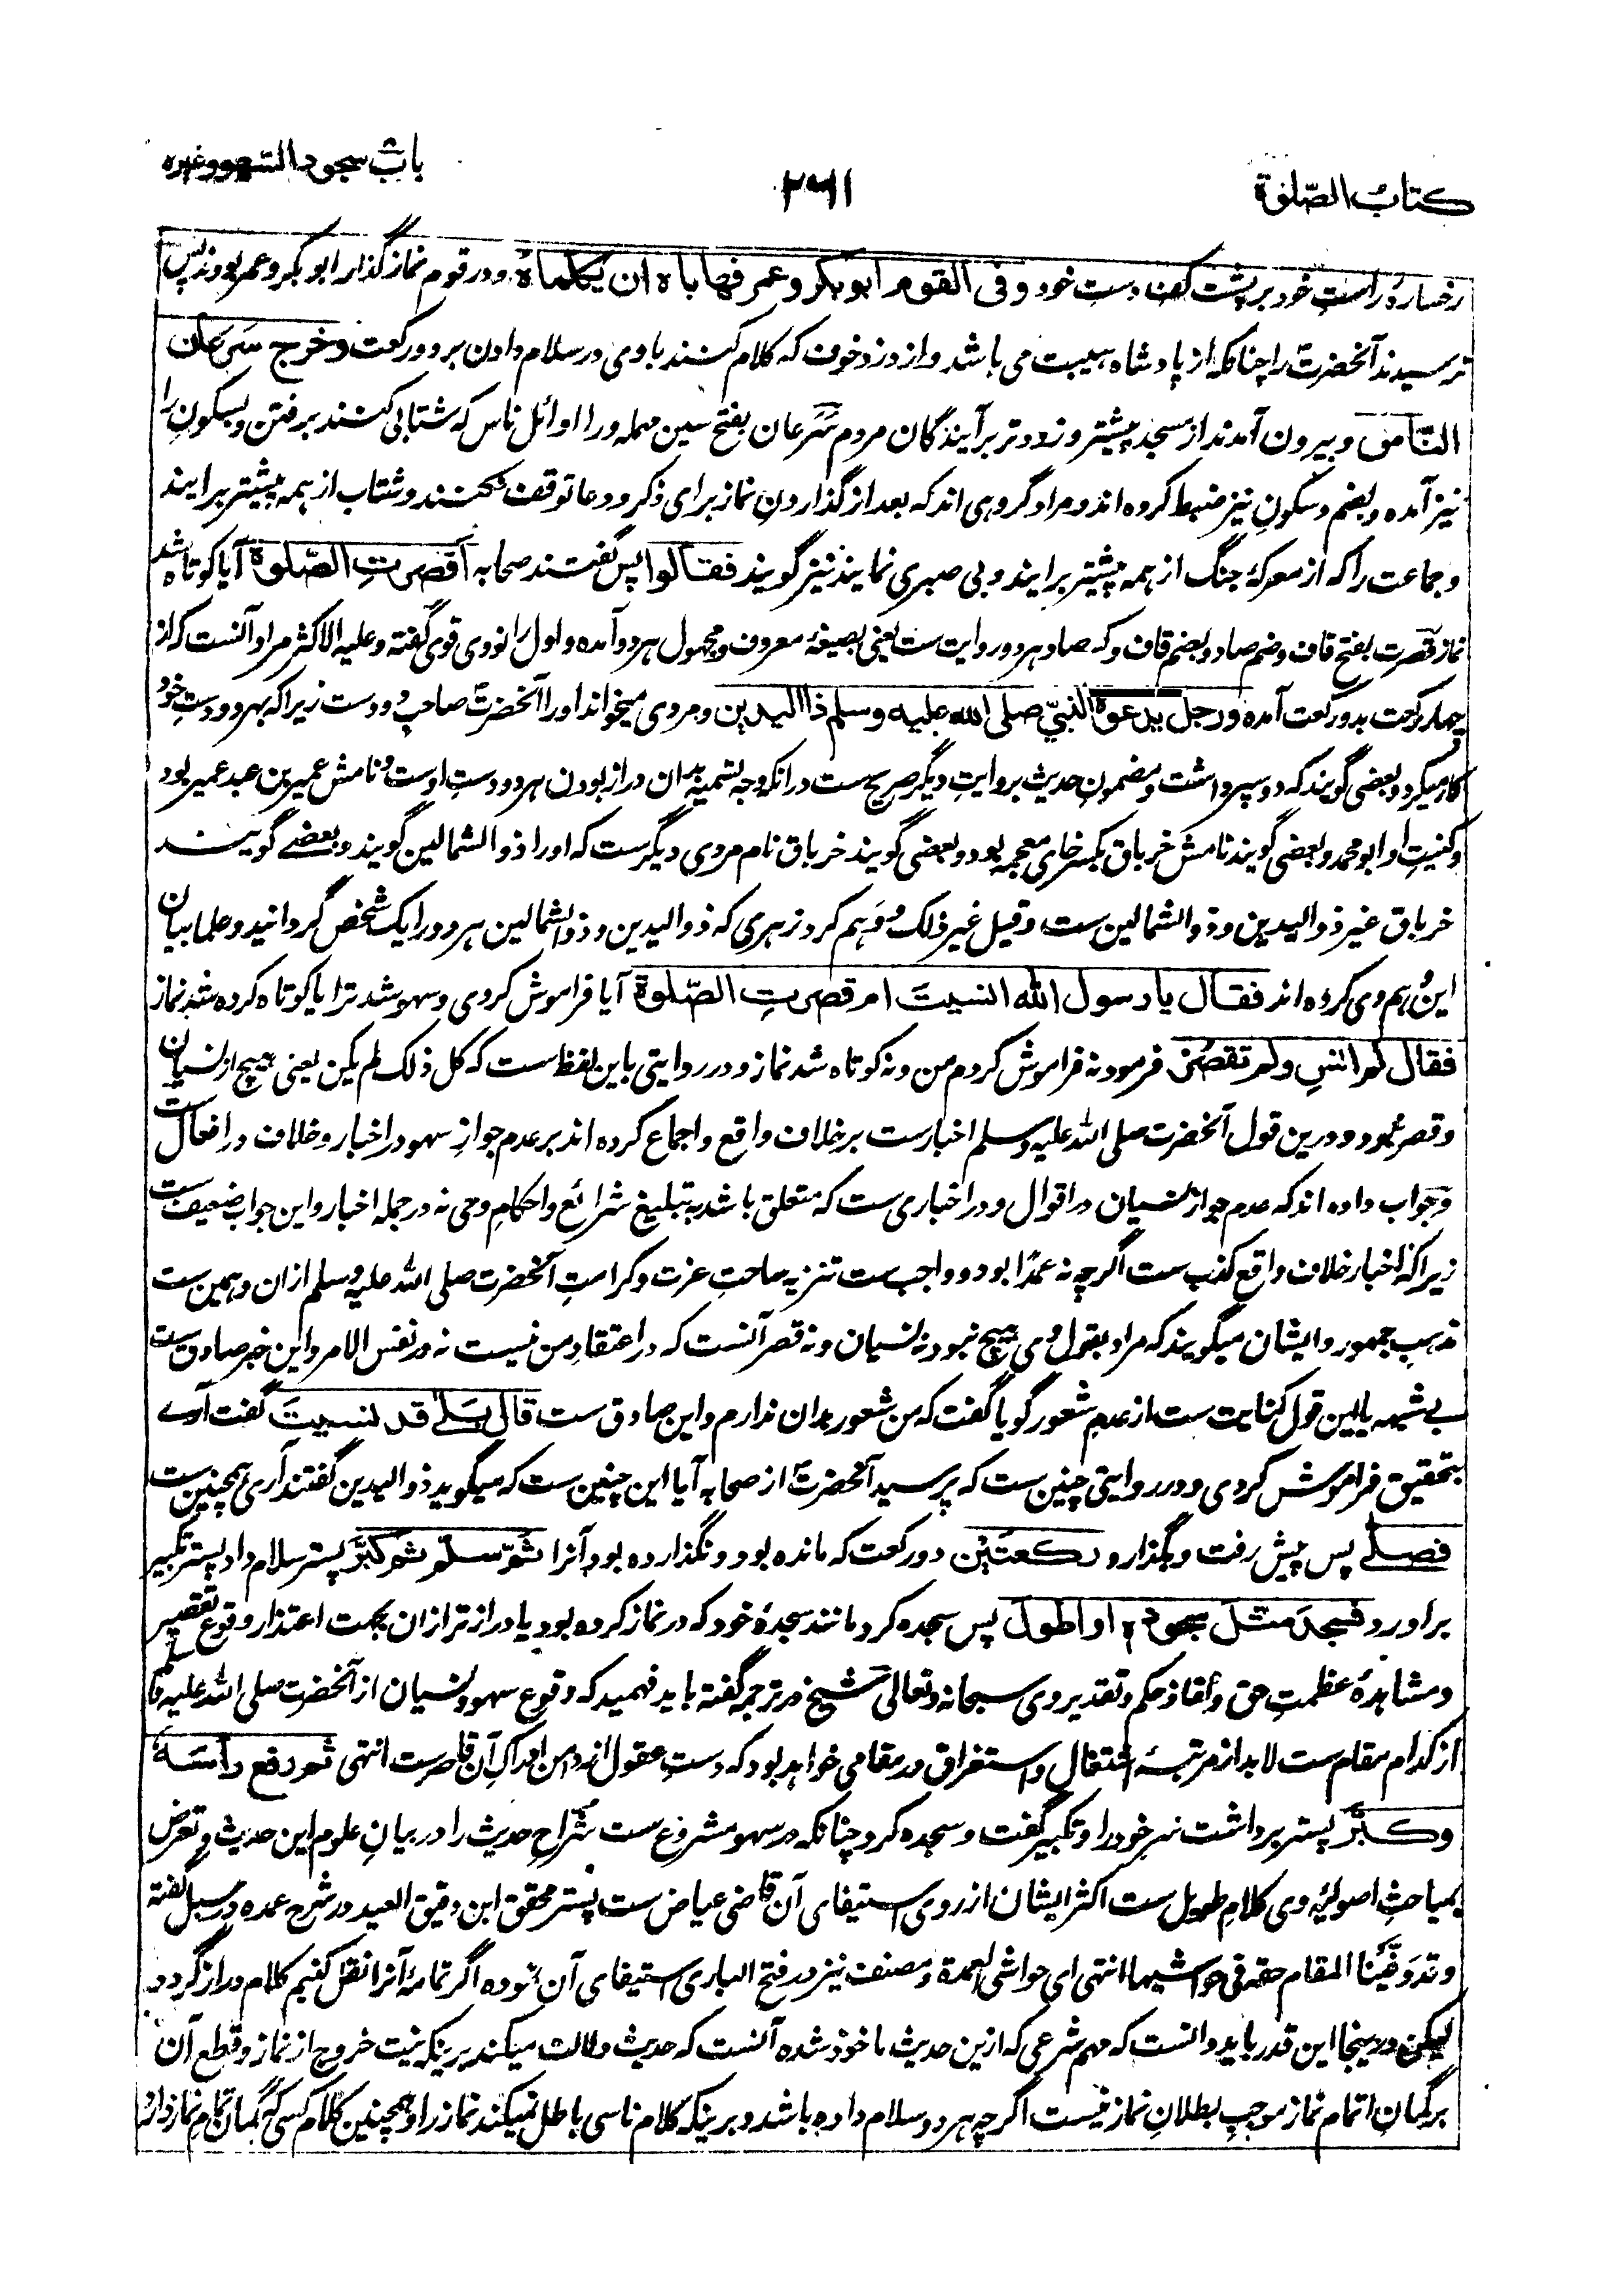 کتاب الصّلوٰة
۲۶۱
باب سجود السّهو وغیره
رخسارۂ راستِ خود بر پشت کف دستِ خود وفی القوم ابو بکر وعمر فهاباه ان یکلماه و در قوم نماز گذار ابو بکر و عمر بودند پس
ترسیدند آنحضرتؐ را چنانکه از پادشاه هیبت می باشد و از وزد خوف که کلام کنند با وی در سلام دادن بر دو رکعت وخرج سَرَعان
النّاس و بیرون آمدند از مسجد پیشتر و زودتر برآیندگان مردم سَرَعان بفتح سین مهمله و را اوائل ناس که شتابی کنند برفتن و بسکونِ را
نیز آمده و بضم و سکونِ نیز ضبط کرده اند و مراد گروهی اند که بعد از گذاردنِ نماز برای ذکر و دعا توقف نکنند و شتاب از همه پیشتر برایند
و جماعت را که از معرکۂ جنگ از همه پیشتر برایند و بی صبری نمایند نیز گویند فقالوا پس گفتند صحابه أقصرتِ الصّلوة آیا کوتاه شد
نماز قصرت بفتح قاف و ضم صاد و بضم قاف و کسر صاد هر دو روایت ست یعنی بصیغۂ معروف و مجهول هر دو آمده و اول را نووی قوی گفته و علیه الاکثر مراد آنست که از
چهار رکعت بدو رکعت آمده ورجل یدعوه النبیّ صلی الله علیه وسلم ذا الیدین و مردی میخواند او را آنحضرتؐ صاحبِ دو دست زیرا که بهر دو دستِ خود
کار میکرد و بعضی گویند که دو سپر داشت و مضمونِ حدیث بروایتِ دیگر صریح ست در انکه وجه تسمیه بدان دراز بودن هر دو دستِ اوست و نامش عمیر بن عبد عمیر بود
و کنیتِ او ابو محمد و بعضی گویند نامش خرباق بکسر خای معجمه بود و بعضی گویند خرباق نام مردی دیگر ست که او را ذو الشمالین گویند و بعضے گویند
خرباق غیر ذو الیدین و ذو الشمالین ست و قیل غیر ذلک و وَهم کرد زهری که ذو الیدین و ذو الشمالین هر دو را یک شخص گردانید و علما بیان
این وهم وی کرده اند فقال یا رسول الله انسیتَ ام قصرتِ الصّلوة آیا فراموش کردی و سهو شد ترا یا کوتاه کرده شد نماز
فقال لم انسِ ولم تقصُر فرمود نه فراموش کردم من و نه کوتاه شد نماز و در روایتی باین لفظ ست که کل ذلک لم یکن یعنی هیچ از نسیان
و قصر نبود و درین قول آنحضرت صلی الله علیه وسلم اخبارست برخلاف واقع و اجماع کرده اند بر عدم جوازِ سهو در اخبار و خلاف در افعال ست
و جواب داده اند که عدم جواز نسیان در اقوال و در اخباری ست که متعلق باشد به تبلیغ شرائع و احکامِ وحی نه در جمله اخبار و این جواب ضعیف ست
زیرا که اخبار خلاف واقع کذب ست اگرچه نه عمدًا بود و واجب ست تنزیه ساحتِ عزت و کرامتِ آنحضرت صلی الله علیه وسلم از ان و همین ست
مذهب جمهور و ایشان میگویند که مراد بقول وی هیچ نبود نه نسیان و نه قصر آنست که در اعتقادِ من نیست نه در نفس الامر و این خبر صادق ست
بے شبهه یا این قول کنایت ست از عدمِ شعور گویا گفت که من شعور بدان ندارم و این صادق ست قال بلےٰ قد نسیتَ گفت آرے
بتحقیق فراموش کردی و در روایتی چنین ست که پرسید آنحضرتؐ از صحابه آیا این چنین ست که میگوید ذو الیدین گفتند آری همچنین ست
فصلّے پس پیش رفت و بگذارد رکعتین دو رکعت که مانده بود و نگذارده بود آنرا ثُمّ سلّم ثم کبّر پستر سلام داد پستر تکبیر
براورد فسجدَ مثلَ سجوده او اطول پس سجده کرد مانند سجدۂ خود که در نماز کرده بود یا دراز تر ازان بجهت اعتذار وقوع تقصیر
و مشاهدۂ عظمتِ حق و نفاذ حکم و تقدیر وی سبحانه و تعالی شیخ در ترجمه گفته باید فهمید که وقوع سهو و نسیان از آنحضرت صلی الله علیه وسلم تا
از کدام مقام ست لابد از مرتبۂ اشتغال و استغراق در مقامی خواهد بود که دستِ عقول از دامن ادراکِ آن قاصرست انتهی ثم رفع رأسَهٗ
وکبّر پستر برداشت سرِ خود را و تکبیر گفت و سجده کرد چنانکه در سهو مشروع ست شُرّاحِ حدیث را در بیانِ علوم این حدیث و تعرض
بمباحثِ اصولیۂ وی کلامِ طویل ست اکثر ایشان از روی استیفای آن قاضی عیاض ست پستر محقق ابن دقیق العید در شرح عمده در سبل گفته
وقد وَفَّینا المقام حقه فی حواشیها انتهی ای حواشی العمدة و مصنف نیز در فتح الباری استیفای آن نموده اگر تمامۂ آنرا نقل کنیم کلام دراز گردد
لیکن در اینجا این قدر باید دانست که مهم شرعی که ازین حدیث ماخوذ شده آنست که حدیث دلالت میکند برینکه نیت خروج از نماز و قطع آن
بر گمانِ اتمام نماز موجبِ بطلانِ نماز نیست اگرچه هر دو سلام داده باشد و برینکه کلام ناسی باطل نمیکند نماز را و همچنین کلام کسی که گمان تمامِ نماز دارد